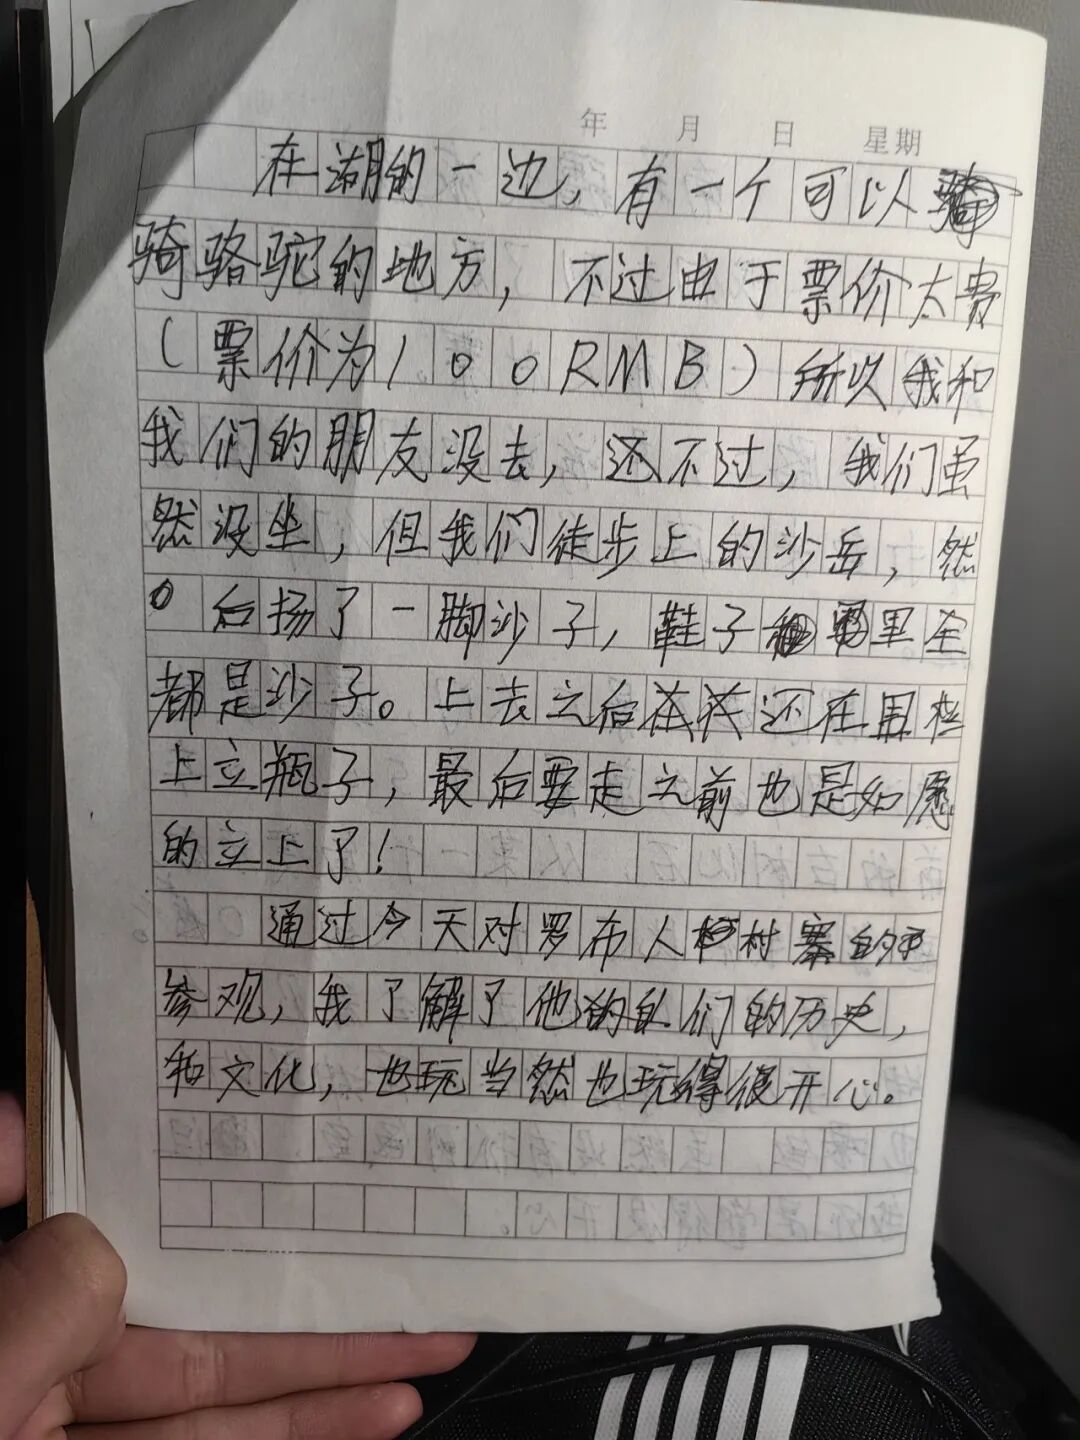 年 月 日 星期
在湖的一边，有一个可以
骑骆驼的地方，不过由于票价太贵
（票价为100RMB）所以我和
我们的朋友没去，还不过，我们虽
然没坐，但我们徒步上的沙岳，然
后扬了一脚沙子，鞋子里全
都是沙子。上去之后还在用
上立瓶子，最后要走之前也是如愿
的立上了！
通过今天对罗布人村寨的
参观，我了解了他们的历史，
和文化，也玩当然也玩得很开心。